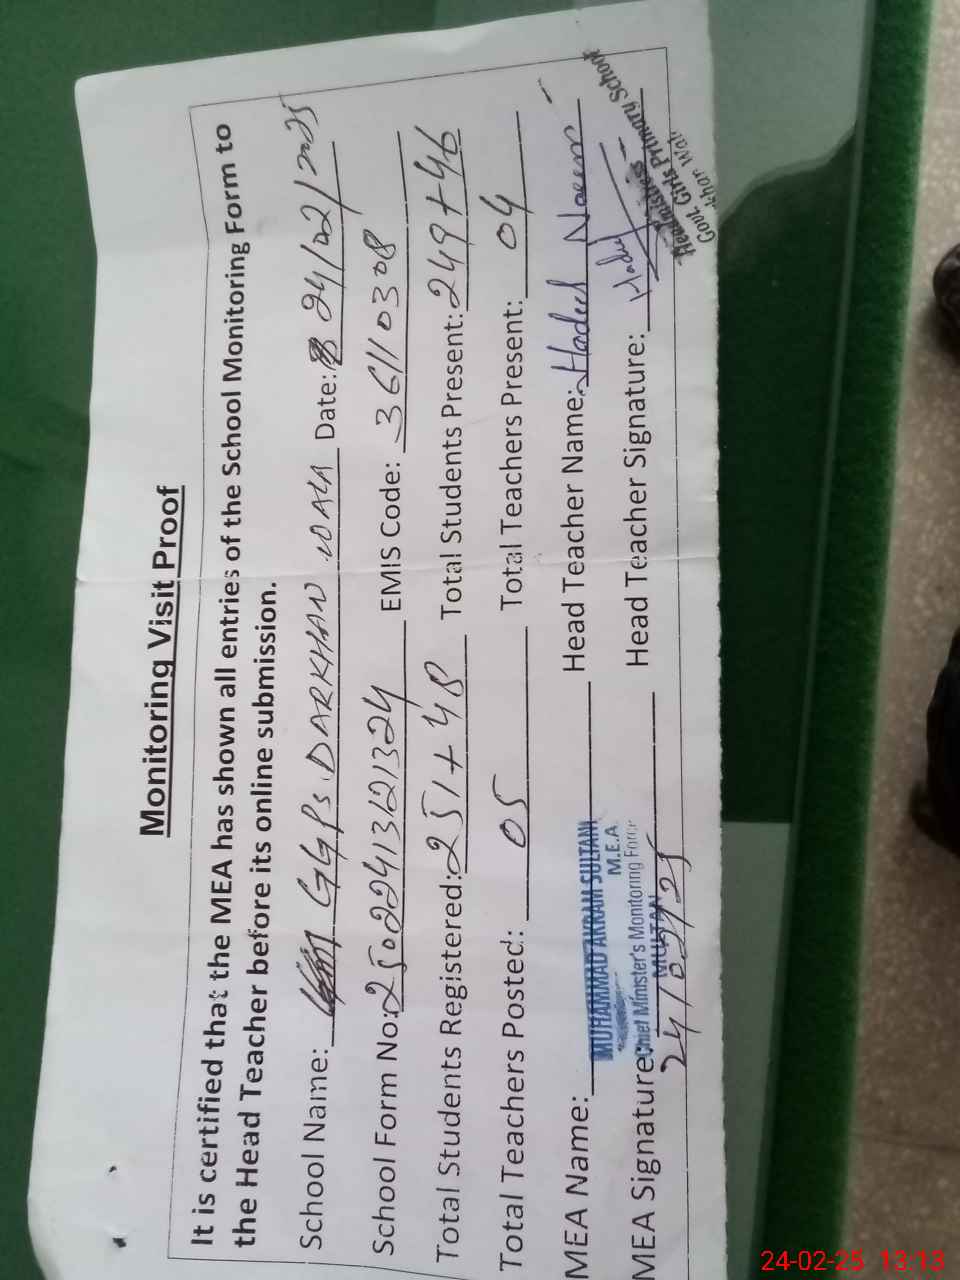 Monitoring Visit Proof
It is certified that the MEA has shown all entries of the School Monitoring Form to
the Head Teacher before its online submission.
School Name: GGPS DARKHAN WALA Date: 24/02/2025
School Form No: 25022413121324 EMIS Code: 36110308
Total Students Registered: 251+48 Total Students Present: 249+46
Total Teachers Posted: 05 Total Teachers Present: 04
MEA Name: Head Teacher Name: Hadeed Naeem
MUHAMMAD AKRAM SULTANI
M.E.A
Chief Minister's Monitoring Force
MULTAN
MEA Signature: Head Teacher Signature:
24/02/25
Headmistress
Govt. Girls Primary School
24-02-25 13:13